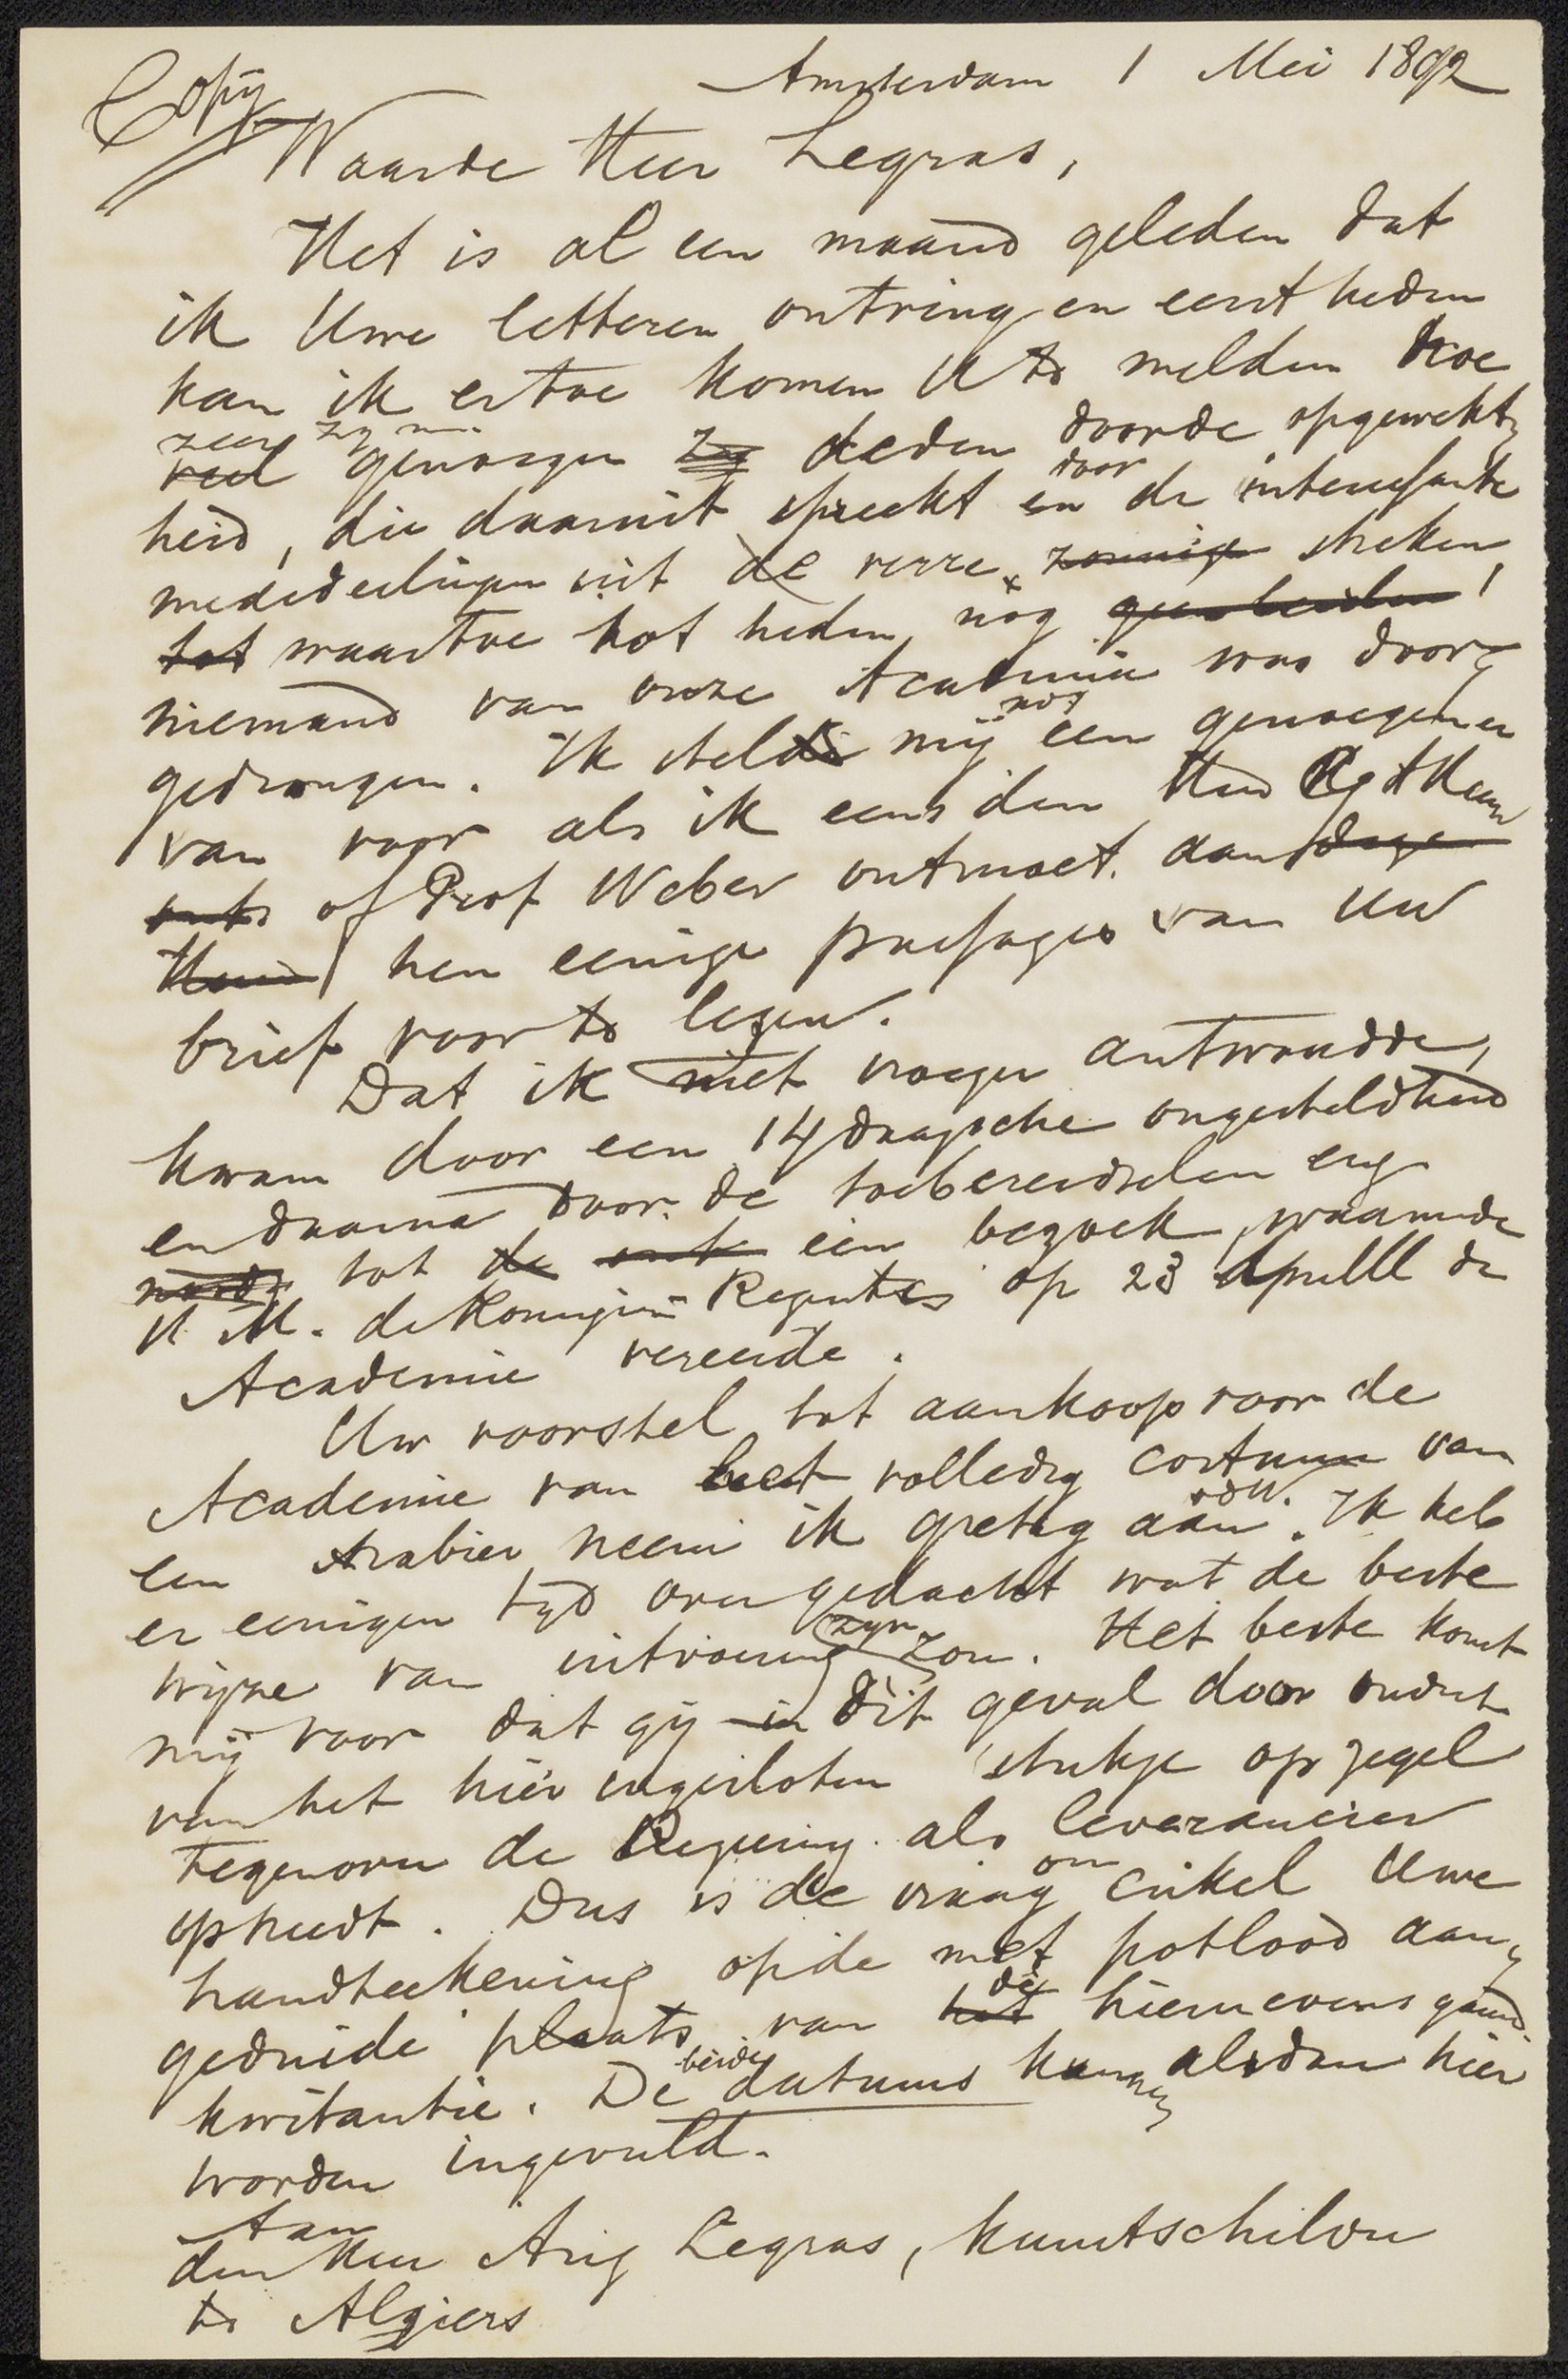 Copy
Amsterdam 1 Mei 1892
Waarde Heer Legras,
Het is al een maand geleden dat
ik Uwe letteren ontving en eerst heden
kan ik ertoe komen U te melden hoe
zeer zy mij
veel genoegen zy deden door de opgewekt-
heid, die daaruit spreekt en door de interessante
mededeelingen uit de verre zonnige streken,
tot waartoe tot heden nog
niemand van onze Academie was door-
gedrongen. Ik stelde mij nog een genoegen er
van voor als ik eens den Heer
of Prof Weber ontmoet. dan
hen eenige passages van Uw
brief voor te lezen.
Dat ik niet vroeger antwoordde,
kwam door een 14 daagsche ongesteldheid
en daarna door de toebereidselen
tot de een bezoek, waarmede
H. M. de Koningin Regentes op 23 April de
Academie vereerde.
Uw voorstel tot aankoop voor de
Academie van het volledig costuum van
een Arabier neem ik gretig aan. Ik heb
er eenigen tyd over gedacht wat de beste
wijze van uitvoering zyn zou. Het beste komt
mij voor dat gij in dit geval door
van het hier ingesloten stukje op zegel
tegenover de Regeering als leverancier
optreedt. Dus is de vraag om enkel Uwe
handteekening op de met potlood aan-
geduide plaats van het de hiernevens gaand.
kwitantie. De beide datums kunnen alsdan hier
worden ingevuld.
Aan
den Heer Arig Legras, kunstschilder
te Algiers